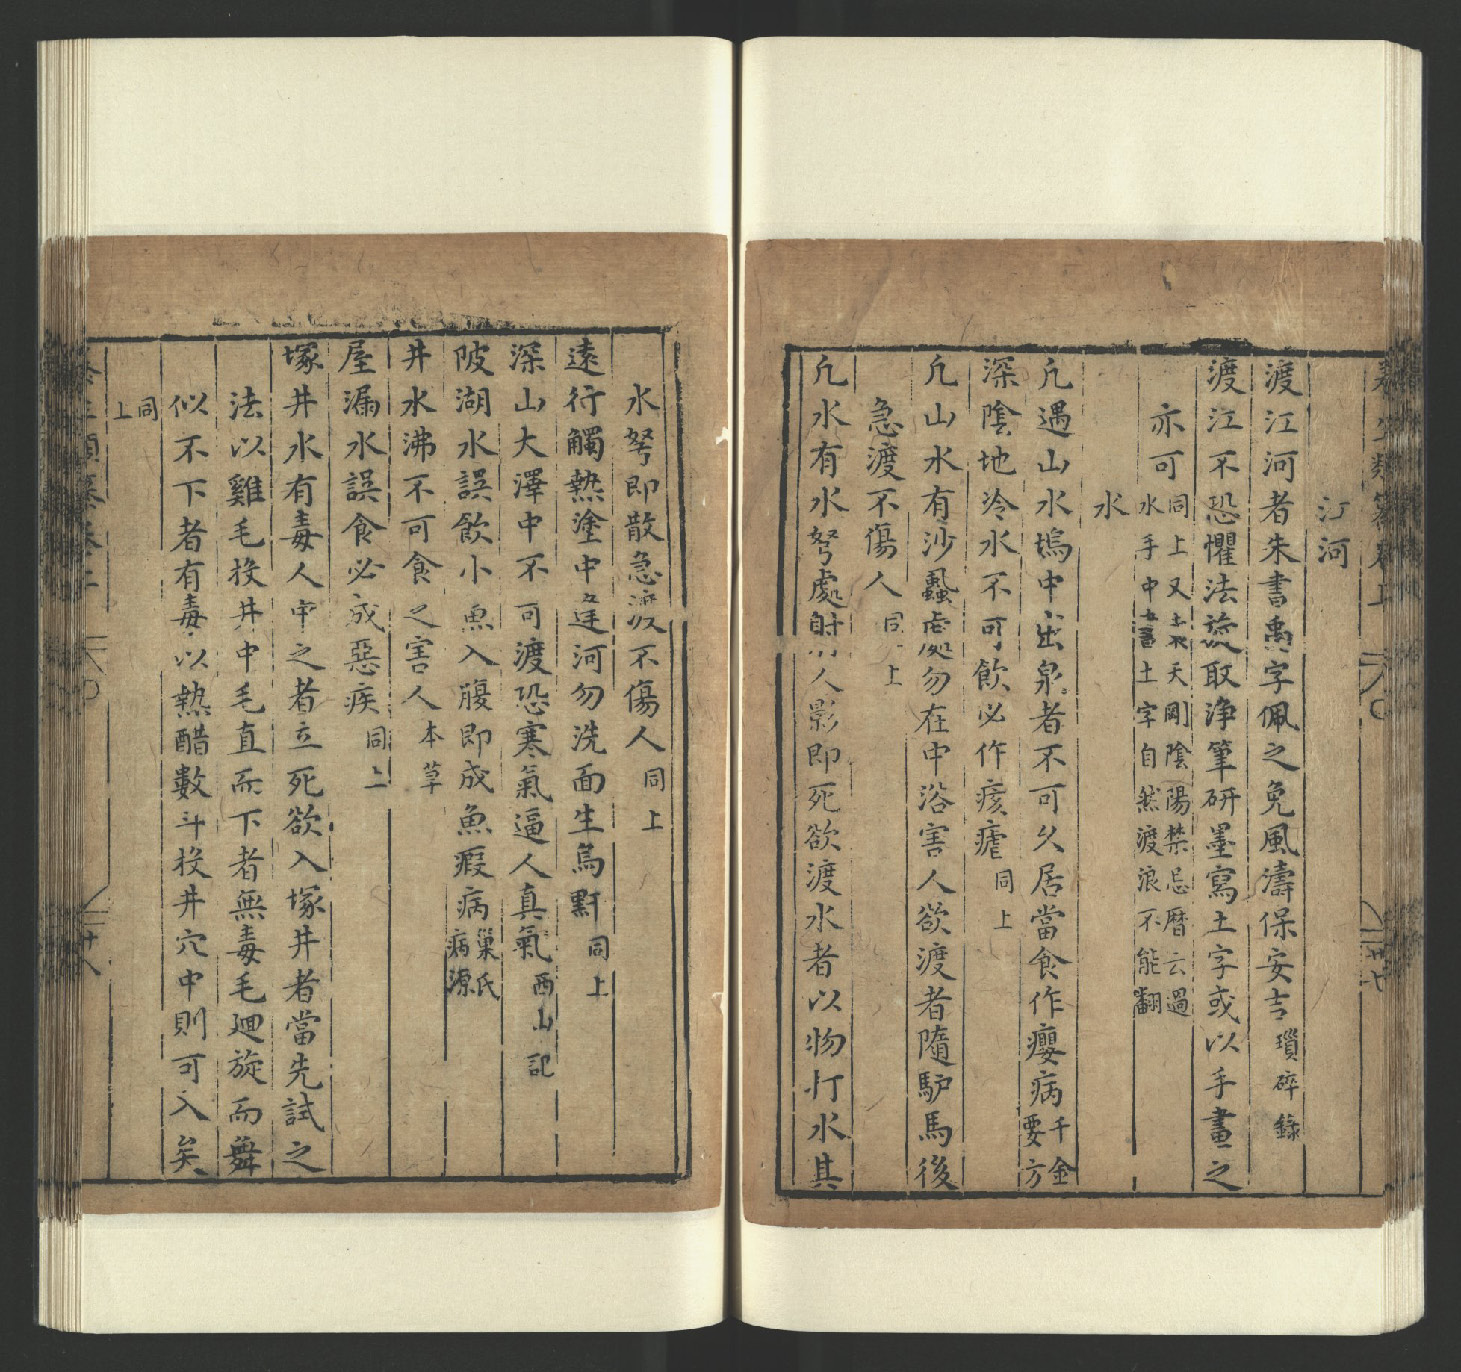 江河
渡江河者朱書禹字佩之免風濤保安吉瑣碎錄
渡江不恐懼法旋取浄筆研墨寫土字或以手畫之
亦可同上又云天剛陰陽禁忌曆云過水手中畫土字自然渡浪不能翻
水
凢遇山水塢中出泉者不可久居當食作癭病千金要方
深陰地冷水不可飲必作痎瘧同上
凢山水有沙蝨處勿在中浴害人欲渡者隨馿馬後
急渡不傷人同上
凢水有水弩處射人影即死欲渡水者以物打水其
水弩即散急渡不傷人同上
遠行觸熱塗中逢河勿洗面生烏䵟同上
深山大澤中不可渡恐寒氣逼人真氣西山記
陂湖水誤飲小魚入腹即成魚瘕病巢氏病源
井水沸不可食之害人本草
屋漏水誤食必成惡疾同上
塚井水有毒人中之者立死欲入塚井者當先試之
法以雞毛投井中毛直而下者無毒毛廻旋而舞
似不下者有毒以熱醋數斗投井穴中則可入矣
同上